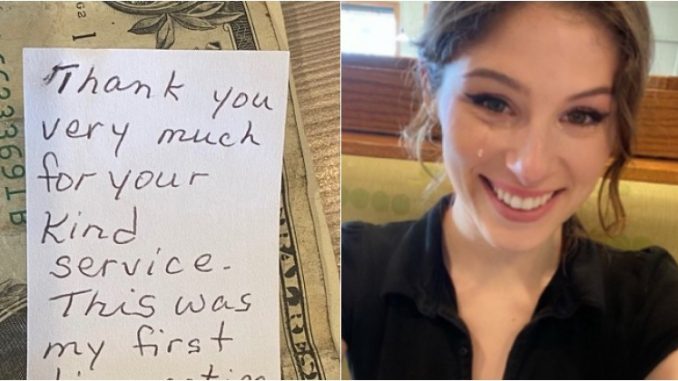 Thank you
very much
for your
kind
service.
This was
my first
62
623369 B